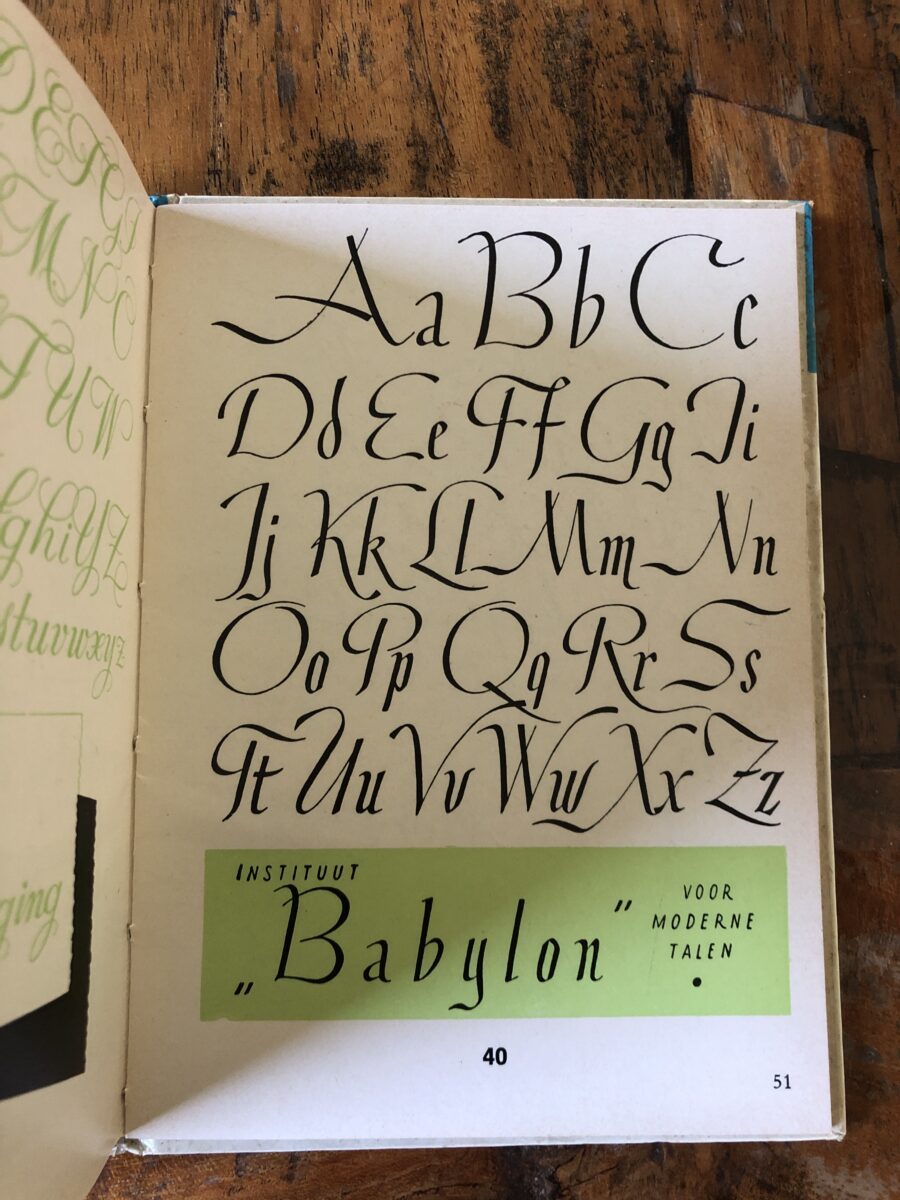 stuvwxyz
ging
Aa Bb Cc
Dd Ee Ff Gg Ii
Jj Kk Ll Mm Nn
Oo Pp Qq Rr Ss
Tt Uu Vv Ww Xx Zz
INSTITUUT
„Babylon”
VOOR
MODERNE
TALEN
40
51